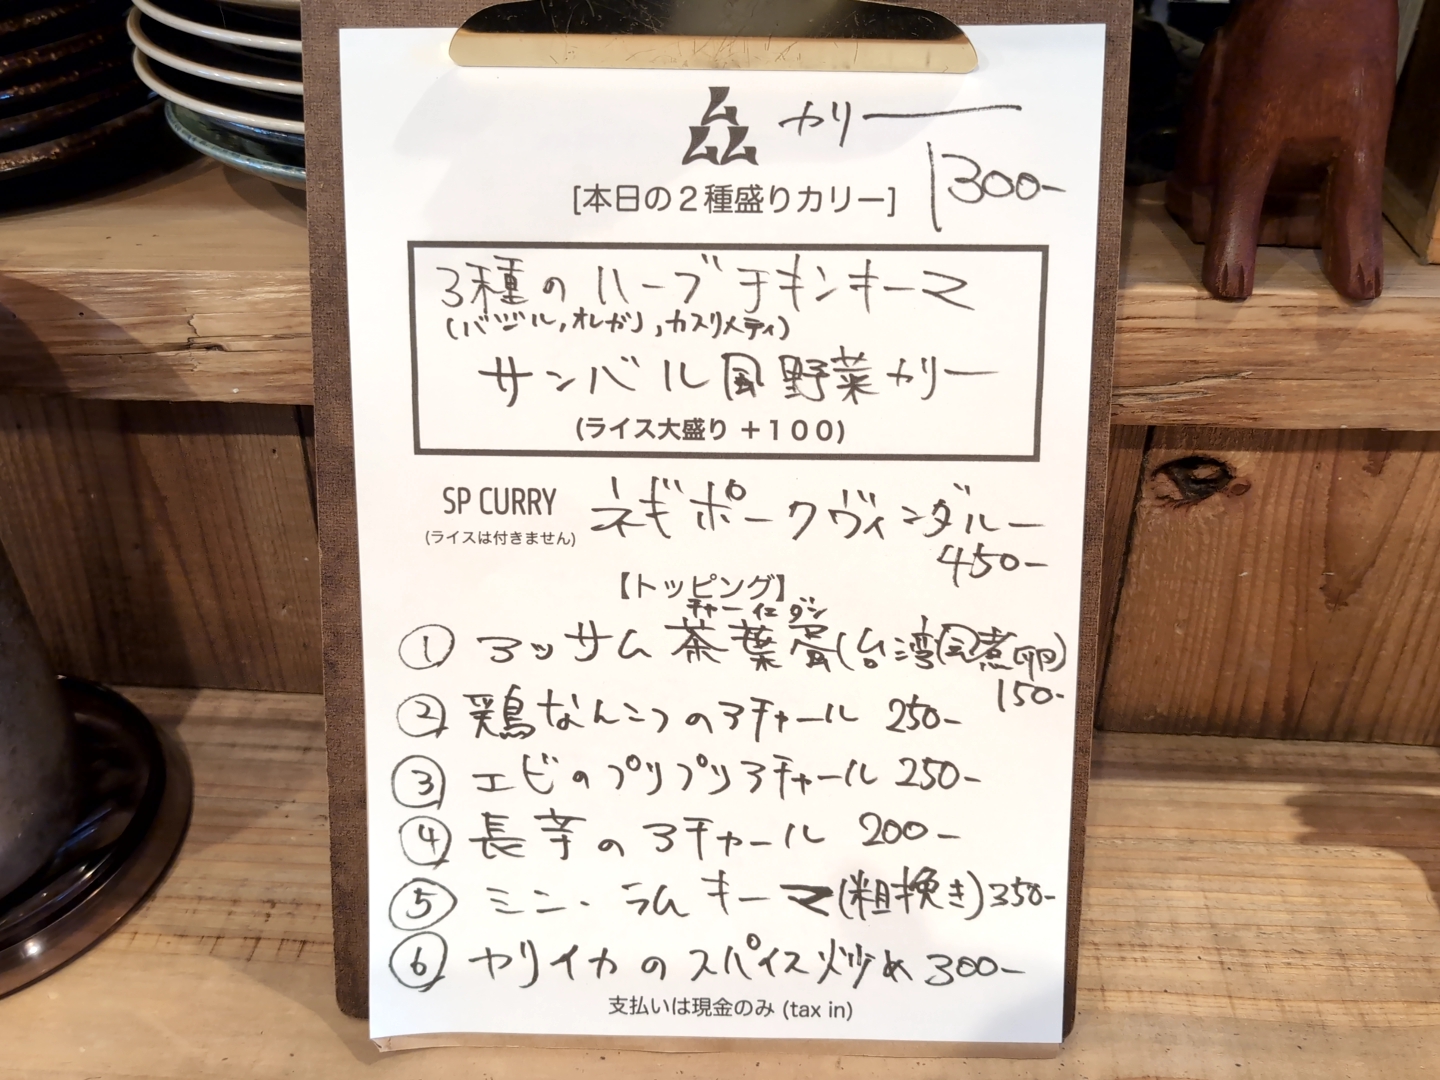 ム ムム カリー
[本日の２種盛りカリー] 1300-
3種のハーブチキンキーマ
(バジル,オレガノ,カスリメティ)
サンバル風野菜カリー
(ライス大盛り＋１００)
SP CURRY ネギポークヴィンダルー
(ライスは付きません) 450-
【トッピング】
チャーイエダン
① アッサム茶葉蛋(台湾風煮卵)
150-
② 鶏なんこつのアチャール 250-
③ エビのプリプリアチャール 250-
④ 長芋のアチャール 200-
⑤ ミン・ラムキーマ(粗挽き) 350-
⑥ ヤリイカのスパイス炒め 300-
支払いは現金のみ (tax in)